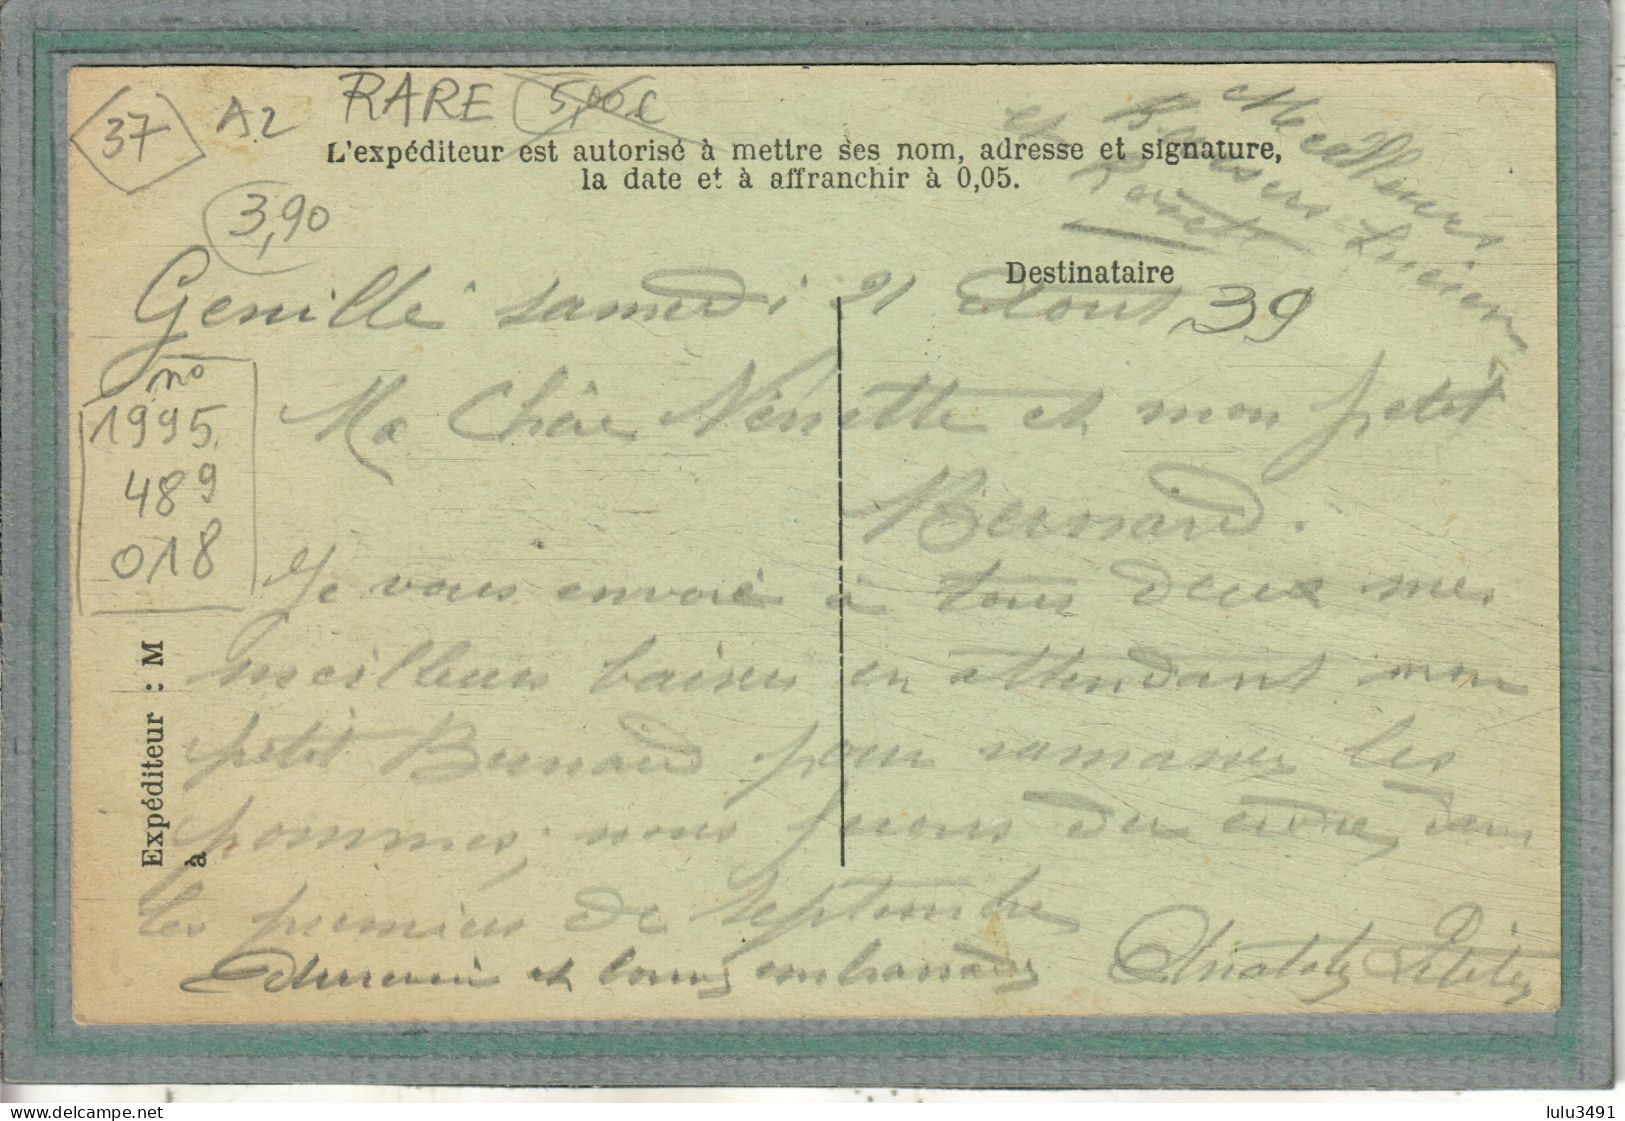 37
A2
RARE 5,00€
3,90
L'expéditeur est autorisé à mettre ses nom, adresse et signature,
la date et à affranchir à 0,05.
Meilleurs
et Baisers Lucien
Destinataire
Genillé samedi 21 Aout 39
n°
1995
489
018
Ma Chère Nénette et mon petit
Bernard.
Je vous envoie à tous deux mes
meilleurs baisers en attendant mon
petit Bernard pour ramasser les
pommes, nous ferons du cidre, dans
les premiers de Septembre
Aurevoir et bons embrassades Anatole
Expéditeur : M
à
lulu3491
www.delcampe.net